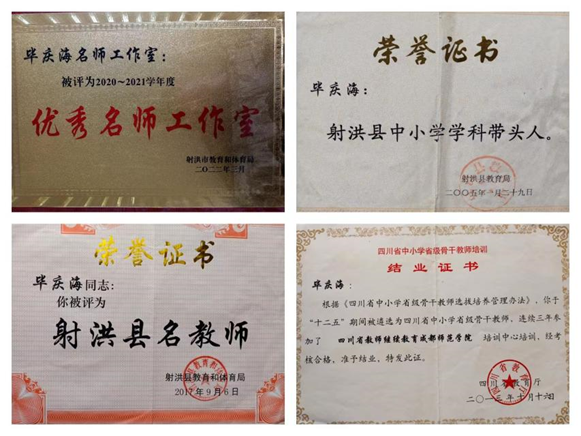 毕庆海名师工作室：
被评为2020～2021学年度
优秀名师工作室
射洪市教育和体育局
二〇二二年三月
荣誉证书
毕庆海：
射洪县中小学学科带头人。
射洪县教育局
二〇〇五年 月二十九日
荣誉证书
毕庆海同志：
你被评为
射洪县名教师
射洪县教育和体育局
2017年9月6日
四川省中小学省级骨干教师培训
结业证书
毕庆海：
根据《四川省中小学省级骨干教师选拔培养管理办法》，你于
“十二五”期间被遴选为四川省中小学省级骨干教师，连续三年参
加了 四川省教师继续教育成都师范学院 培训中心培训，经考
核合格，准予结业，特发此证。
四川省教育厅
二〇一三年十月十六日